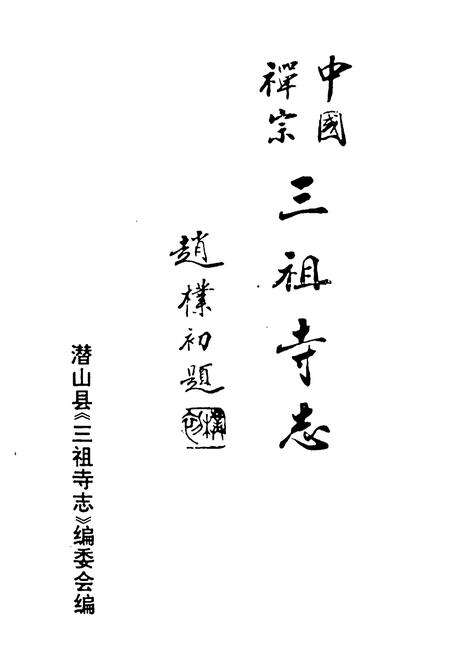 中國
禪宗
三祖寺志
趙樸初題
樸初
潜山县《三祖寺志》编委会编